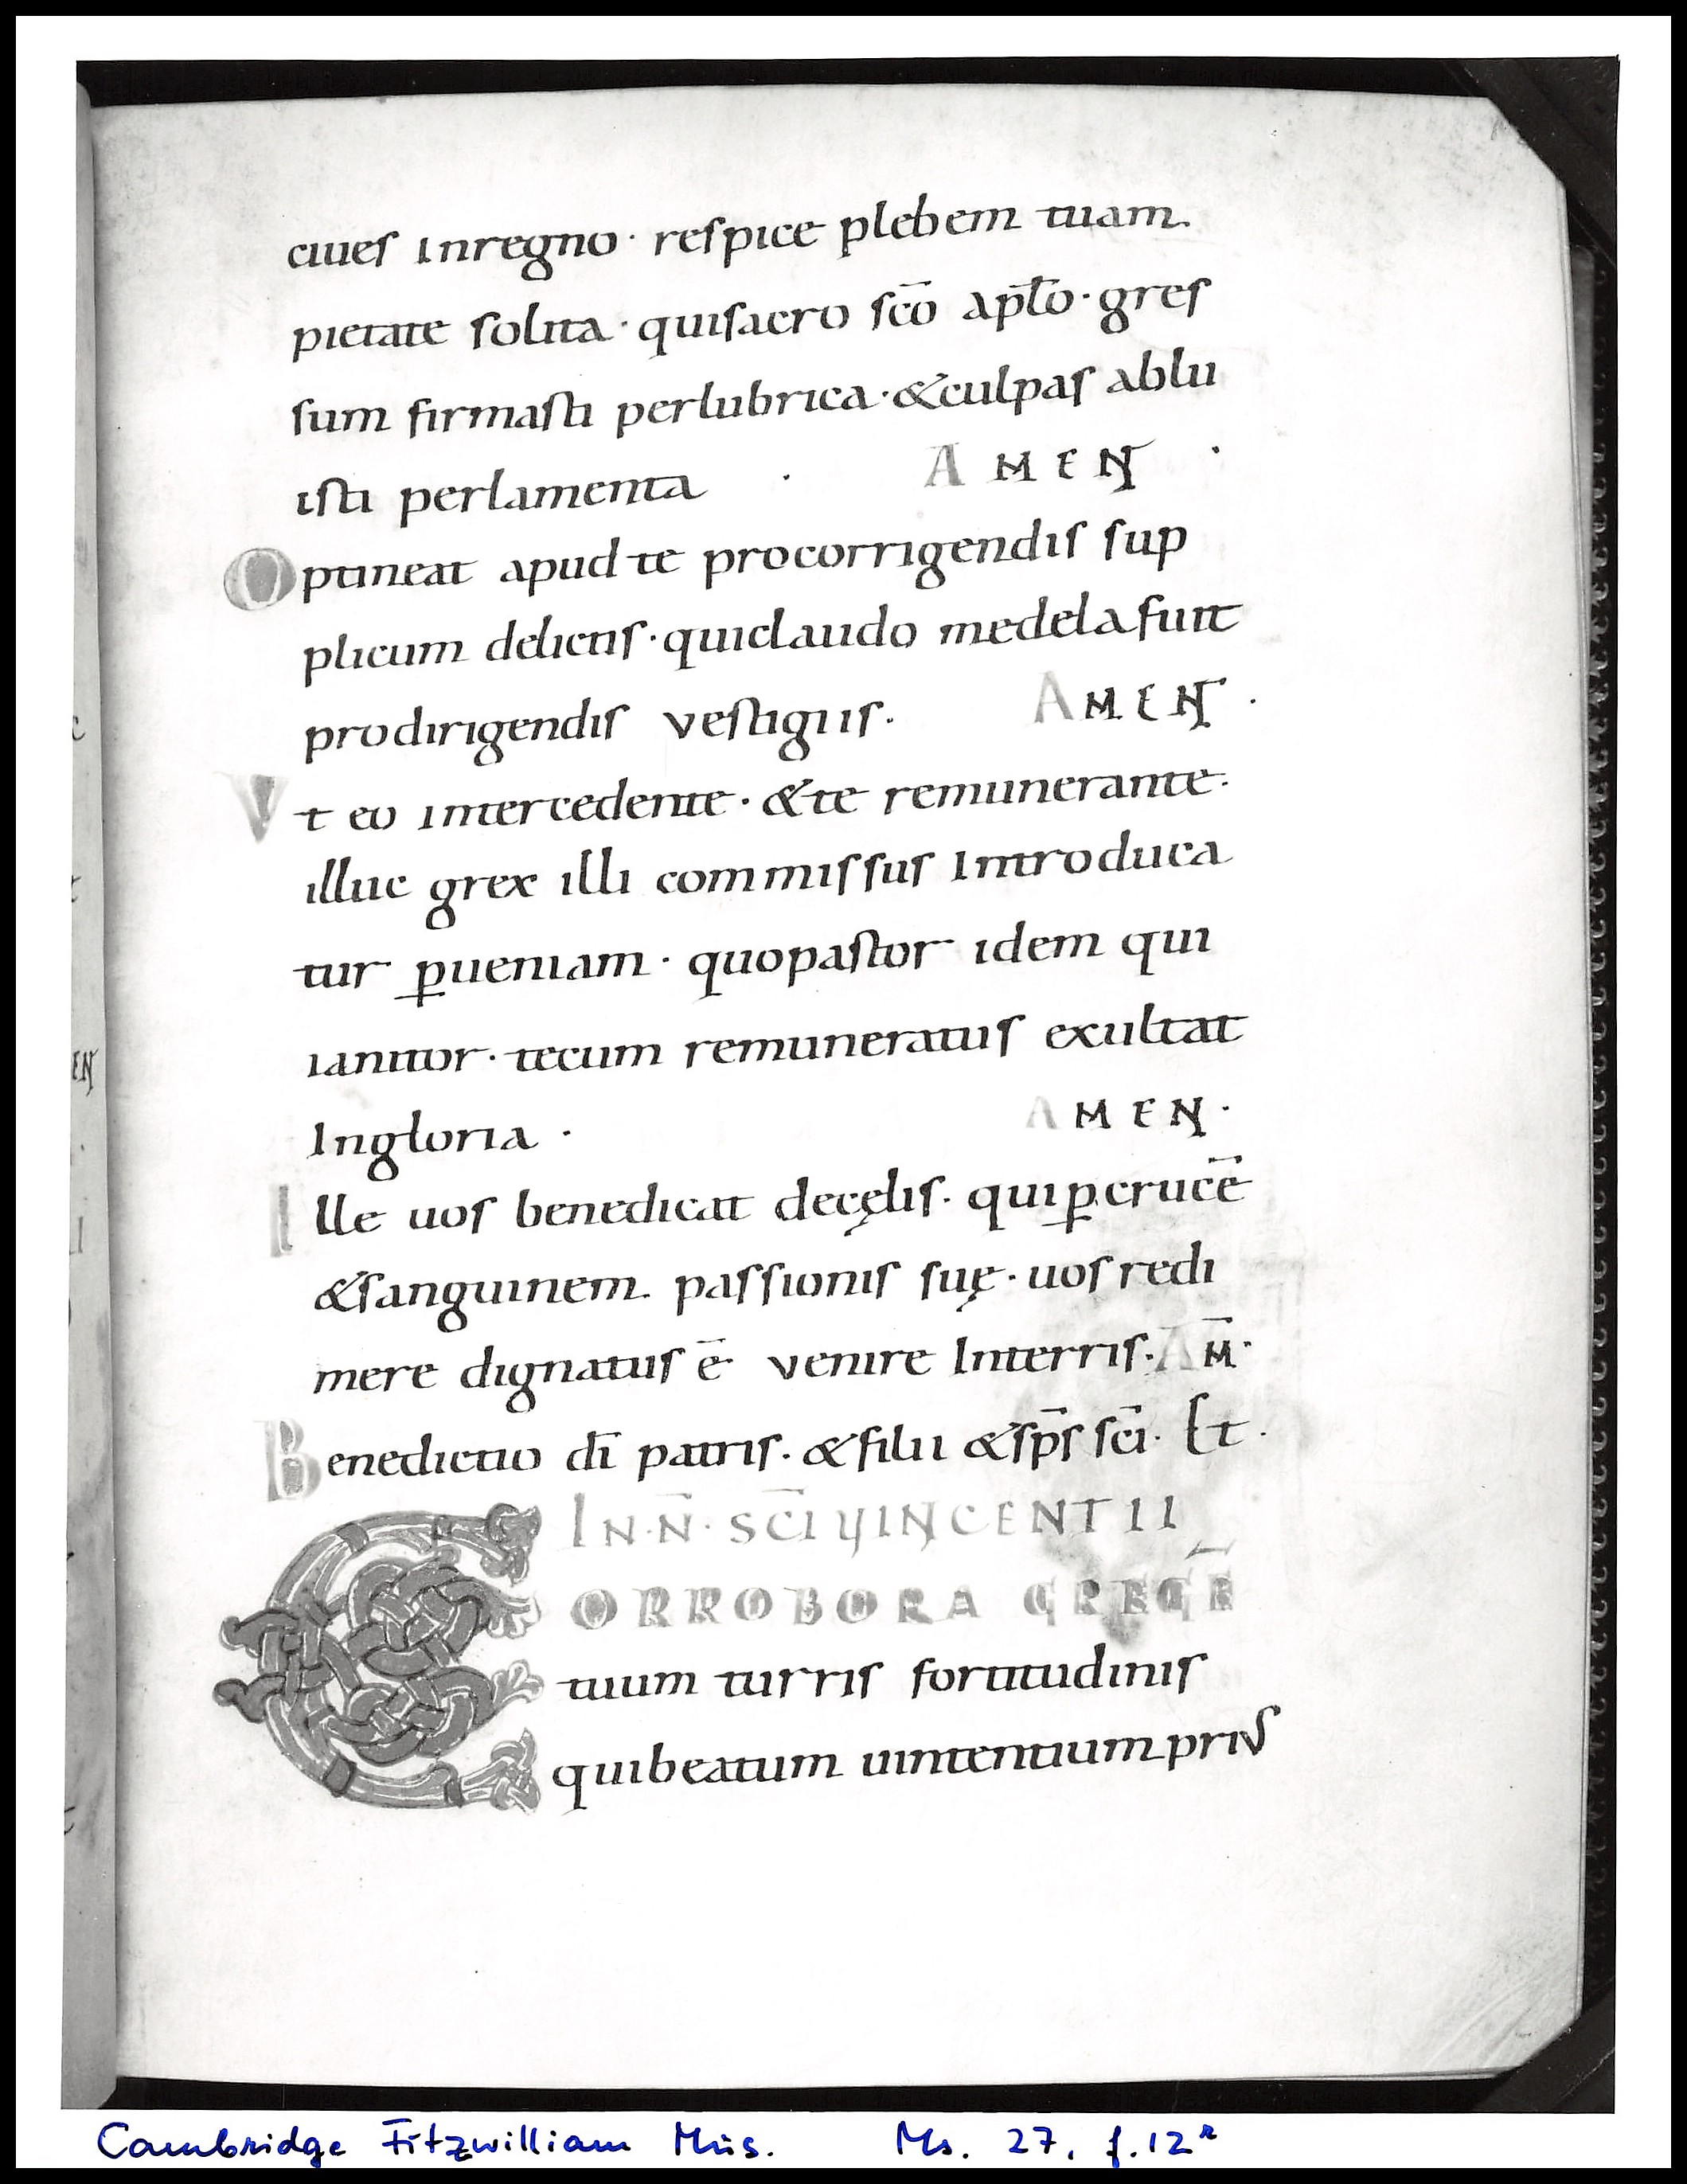 ciues Inregno · respice plebem tuam.
pietate solita · quisacro sc̄o apl̄o · gres
sum firmasti perlubrica · &culpas ablu
isti perlamenta · AMEN ·
Optineat apud te procorrigendis sup
plicum delictis · quiclaudo medela fuit
prodirigendis vestigiis. AMEN ·
Vt eo intercedente · &te remunerante·
illuc grex illi commissus Introduca
tur p̱ueniam · quopastor idem qui
ianitor · tecum remuneratus exultat
Ingloria · AMEN ·
Ille uos benedicat decęlis · quip̱crucē
&sanguinem passionis suę · uos redi
mere dignatus ē venire Interris · AM̄ ·
Benedictio dī patris · &filii &sp̄s sc̄i · Et ·
IN · N̄ · SC̄I VINCENTII
CORROBORA GREGĒ
tuum turris fortitudinis
quibeatum uintentium prius
Cambridge Fitzwilliam Mus. Ms. 27, f.12r